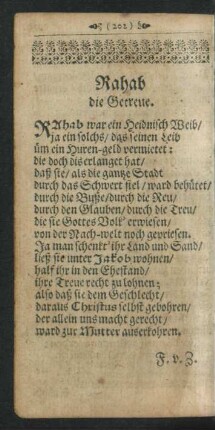 (202)
Rahab
die Getreue.
RAhab war ein Heidnisch Weib/
ja ein solchs/ das seinen Leib
üm ein Huren-geld vermietet:
die doch dis erlanget hat/
daß sie/ als die gantze Stadt
durch das Schwert fiel/ ward behütet/
durch die Busse/ durch die Reu/
durch den Glauben/ durch die Treu/
die sie Gottes Volk erwiesen/
von der Nach-welt noch gepriesen.
Ja man schenkt ihr Land und Sand/
ließ sie unter Jakob wohnen/
half ihr in den Ehestand/
ihre Treue recht zu lohnen;
also daß sie dem Geschlecht/
daraus Christus selbst gebohren/
der allein uns macht gerecht/
ward zur Mutter auserkohren.
F. v. Z.